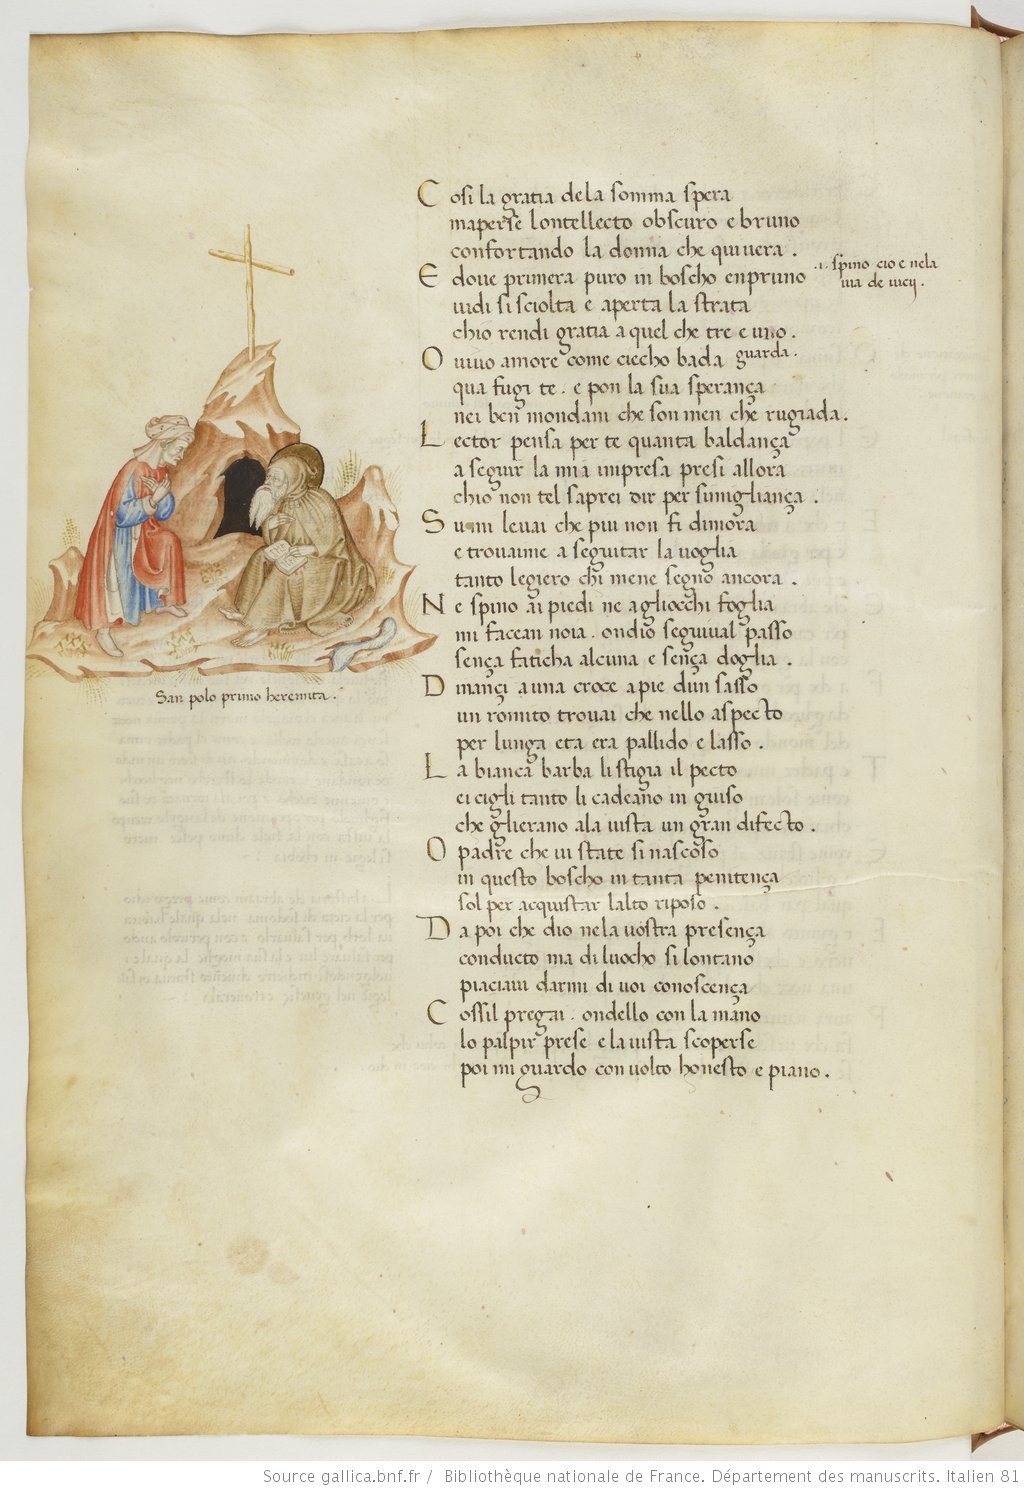 Cosi la gratia dela somma spera
maperse lontellecto obscuro e bruno
confortando la donna che quiuera .
E doue primera puro in boscho enpruno
.i. spino cio e nela
uia de uicij .
uidi si sciolta e aperta la strata
chio rendi gratia a quel che tre e uno .
O uiuo amore come ciecho bada guarda .
qua fugi te . e pon la sua sperança
nei ben mondani che son men che rugiada .
Lector pensa per te quanta baldança
a seguir la mia impresa presi allora
chio non tel saprei dir per simigliança .
Su mi leuai che piu non fi dimora
e trouaime a seguitar la uoglia
tanto legiero chi mene segno ancora .
Ne spino ai piedi ne agliocchi foglia
mi facean noia . ondio seguiual passo
sença faticha alcuna e sença doglia .
Dinançi a una croce a pie dun sasso
un romito trouai che nello aspecto
per lunga eta era pallido e lasso .
La bianca barba li stigia il pecto
ei cigli tanto li cadeano in guiso
che glierano ala uista un gran difecto .
O padre che ui state si nascoso
in questo boscho in tanta penitença
sol per acquistar lalto riposo .
Da poi che dio nela uostra presença
conducto ma di luocho si lontano
piaciaui darmi di uoi conoscença
Cossil pregai . ondello con la mano
lo palpir prese e la uista scoperse
poi mi guardo con uolto honesto e piano .
San polo primo heremita .
Source gallica.bnf.fr / Bibliothèque nationale de France. Département des manuscrits. Italien 81